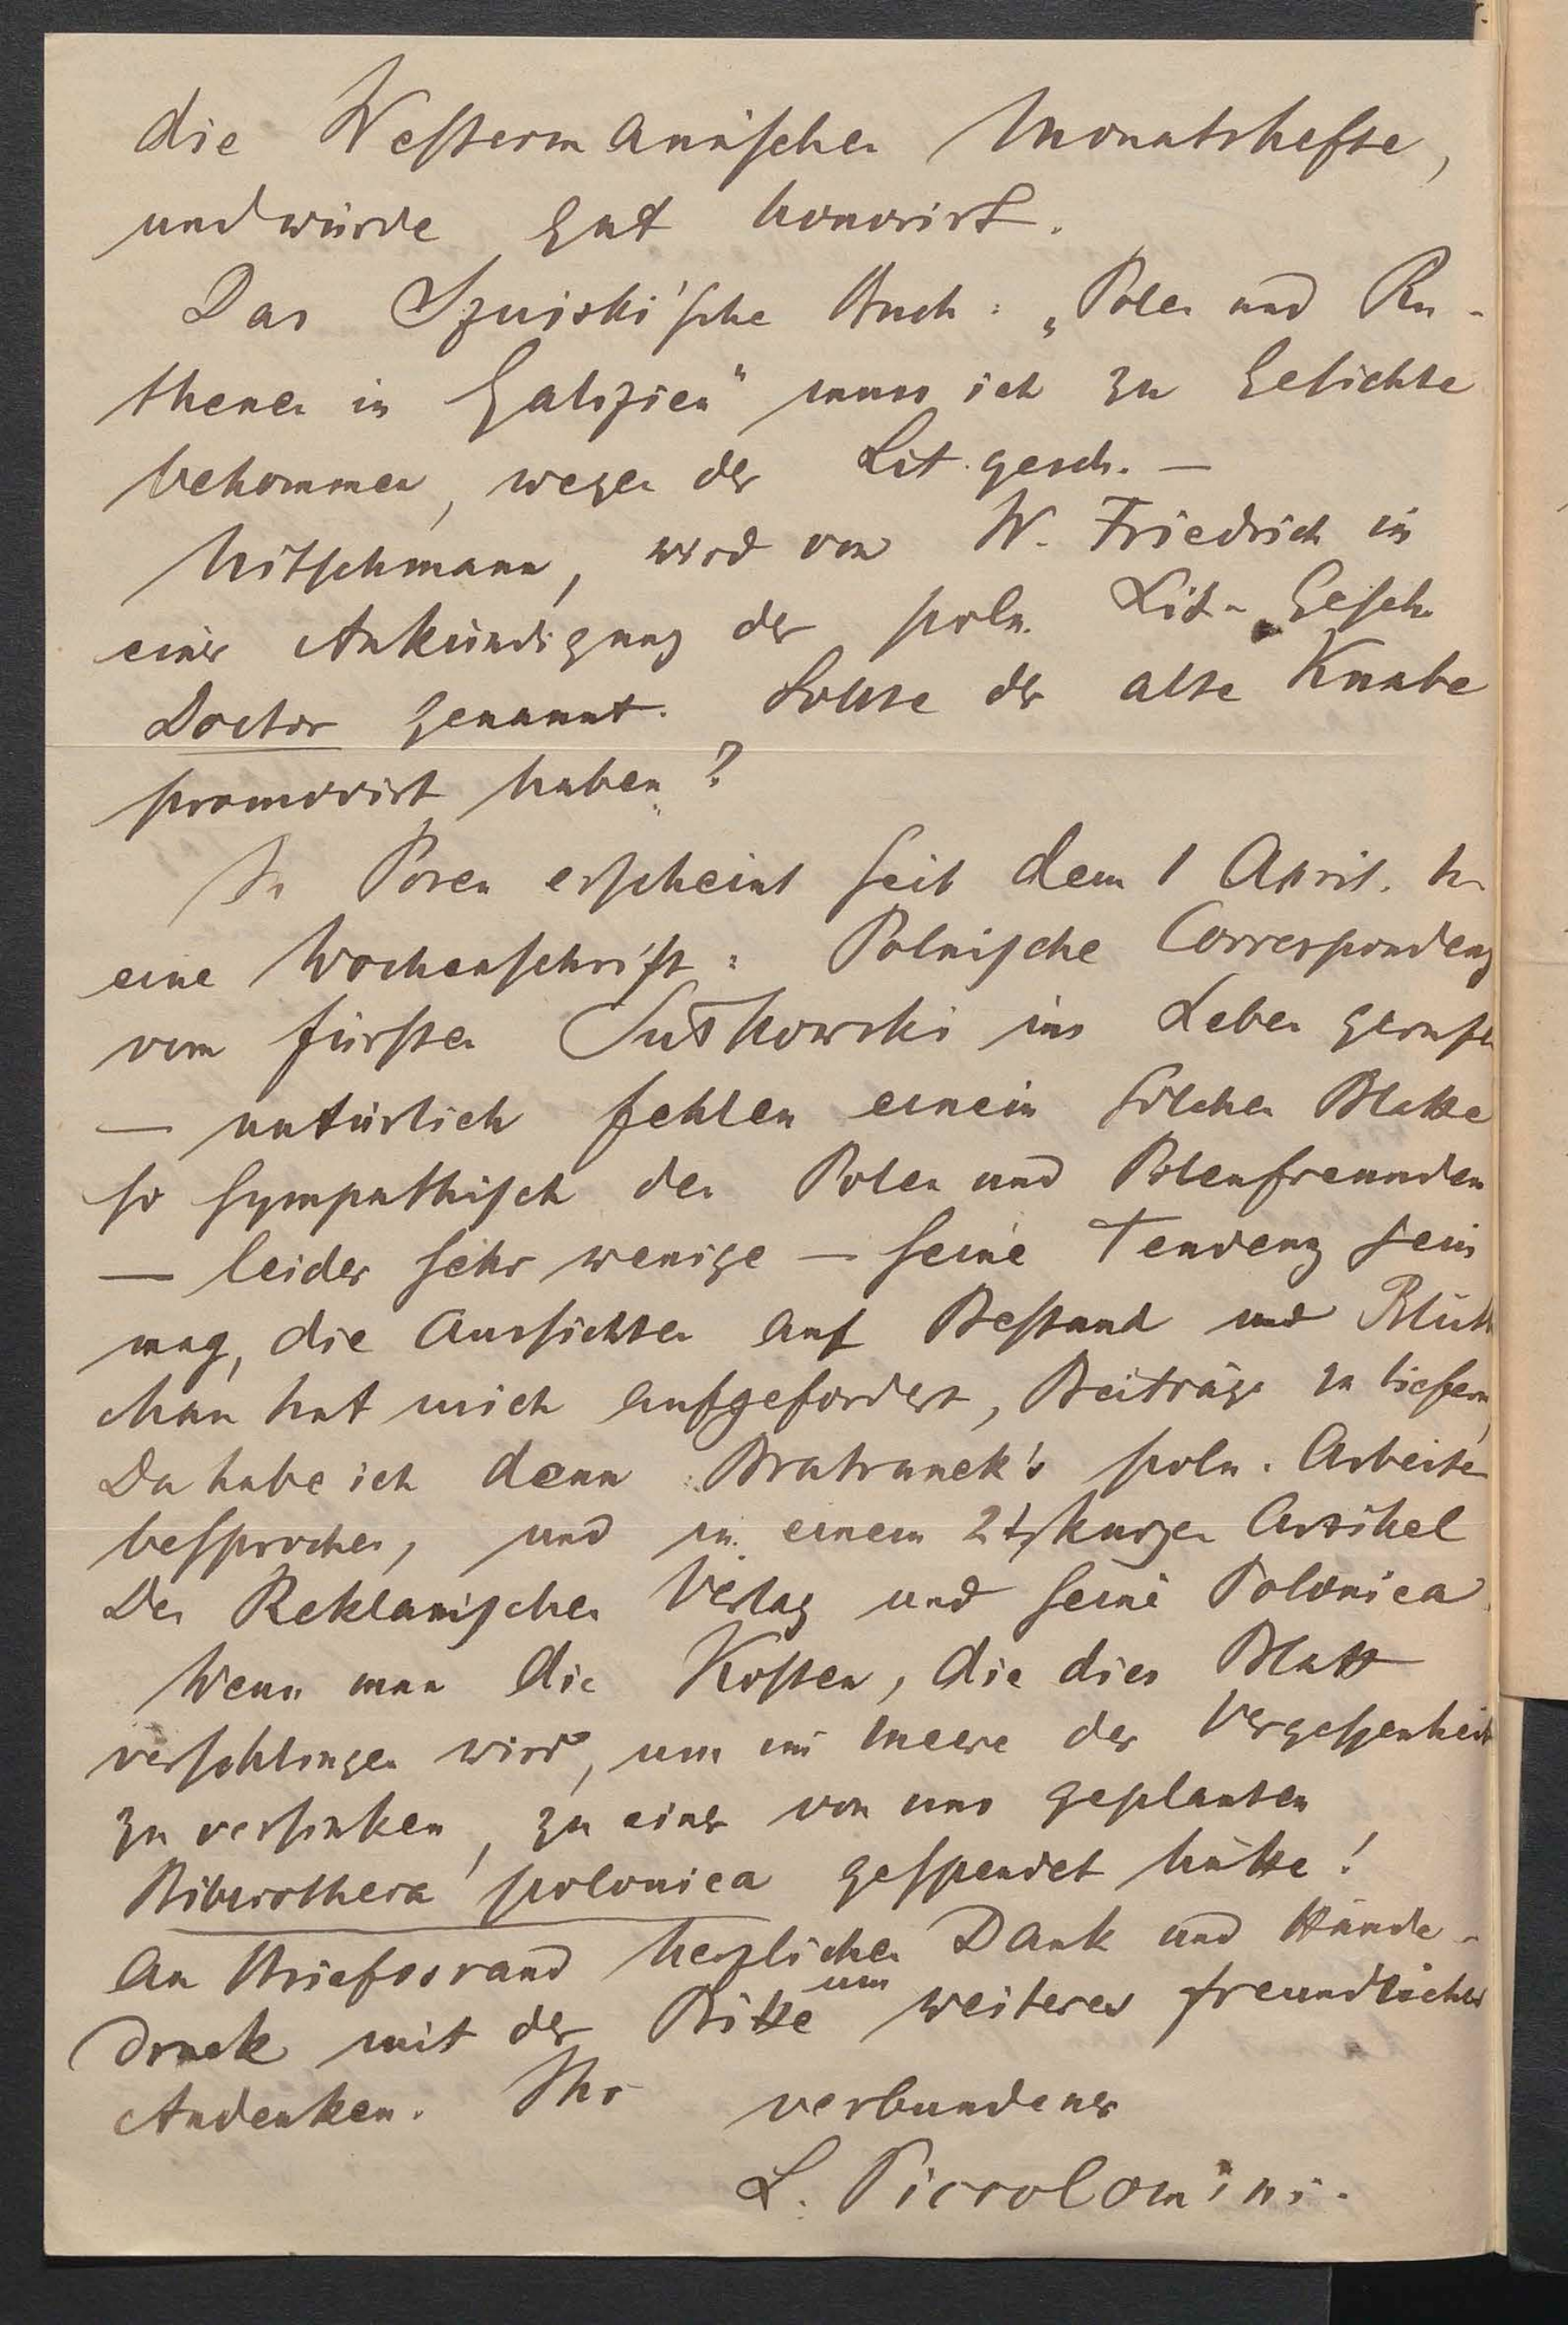 die Westermannischen Monatshefte,
und würde gut honorirt.
Das Szuiski'sche Buch: „Polen und Ru-
thenen in Galizien" muss ich zu Gesichte
bekommen, wegen der Lit. gesch. —
Nitschmann, wird von W. Friedrich in
einer Ankündigung der poln. Lit. Gesch.
Doctor genannt. Sollte der alte Knabe
promovirt haben?
In Posen erscheint seit dem 1 April.
eine Wochenschrift: Polnische Correspondenz
vom Fürsten Sułkowski ins Leben gerufen
— natürlich fehlen einem solchen Blatte
so sympathisch den Polen und Polenfreunden
— leider sehr wenige — seine Tendenz sein
mag, die Aussichten auf Bestand und Blüth
Man hat mich aufgefordert, Beiträge zu liefern,
Da habe ich denn Bratranek's poln. Arbeiten
besprochen, und in einem 2t kurzen Artikel
Den Reklamischen Verlag und seine Polonica.
Wenn man die Kosten, die dies Blatt
verschlingen wird, um im Meere der Vergessenheit
zu versinken, zu einer von uns geplanten
Bibliotheca polonica gespendet hätte!
Am Briefesrand herzlichen Dank und Hände-
druck mit der Bitte um weiteres freundliches
Andenken. Ihr verbundener
L. Piccolomini.